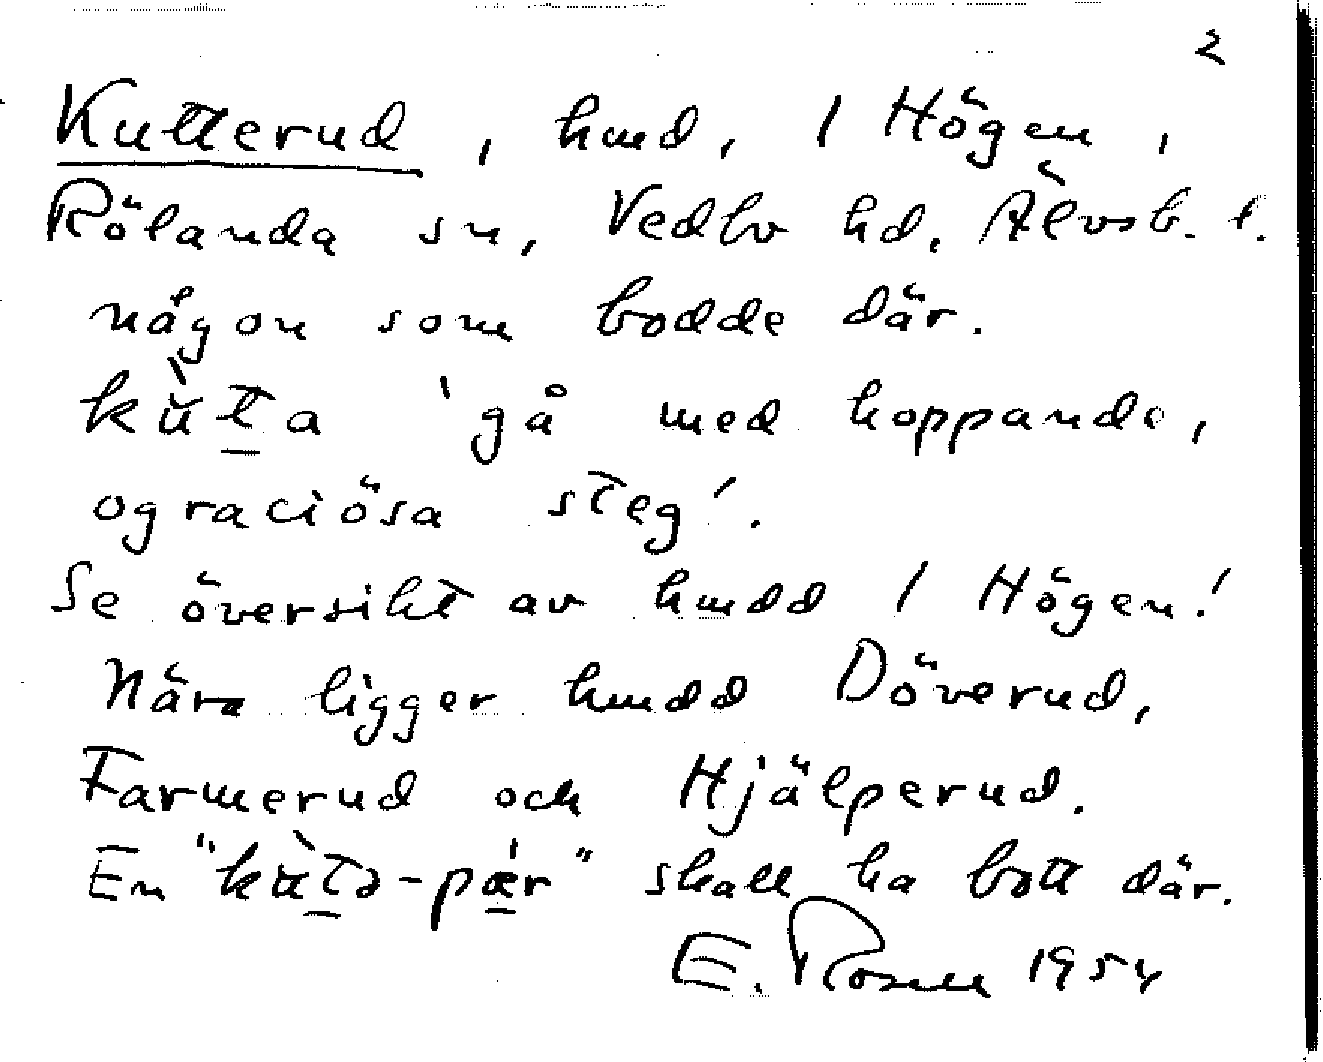 2
Kutterud, hmd, 1 Högen,
Rölanda sn, Vedbo hd, Älvsb. l.
någon som bodde där.
kùta 'gå med hoppande,
ograciösa steg'.
Se översikt av hmdd 1 Högen!
Nära ligger hmdd Döverud,
Farmerud och Hjälperud.
En "kùtə-pǽr" skall ha bott där.
E. Rosell 1954